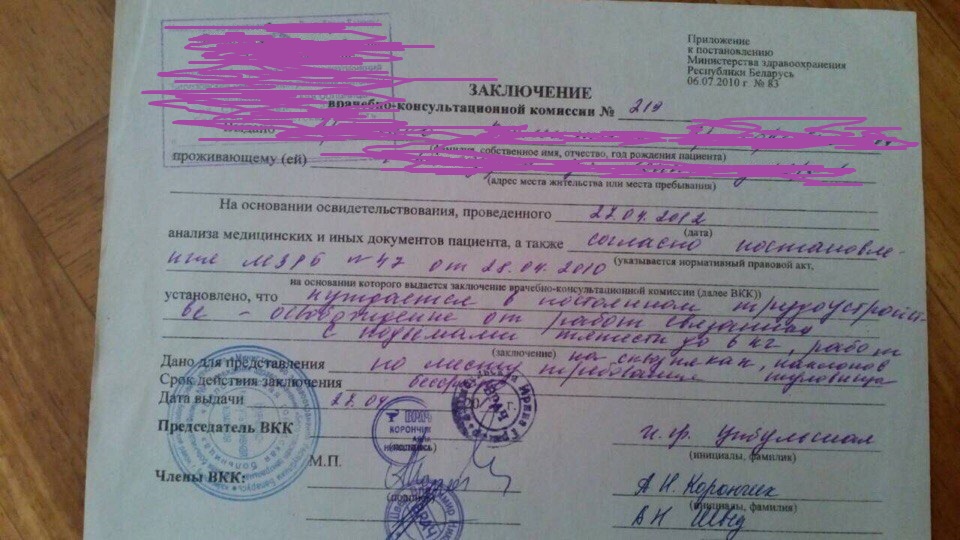 Приложение
к постановлению
Министерства здравоохранения
Республики Беларусь
06.07.2010 г № 83
ЗАКЛЮЧЕНИЕ
врачебно-консультационной комиссии № 219
Выдано
(фамилия, собственное имя, отчество, год рождения пациента)
проживающему (ей)
(адрес места жительства или места пребывания)
На основании освидетельствования, проведенного 27.04.2012
(дата)
анализа медицинских и иных документов пациента, а также согласно постановле-
ние МЗРБ №47 от 28.04.2010 (указывается нормативный правовой акт,
на основании которого выдается заключение врачебно-консультационной комиссии (далее ВКК))
установлено, что нуждается в постоянном трудоустройст-
ве - освобождение от работ связанных
с подъемами тяжести до 6 кг, работы
(заключение) на сквозняках, наклонов
Дано для представления по месту требования туловища
Срок действия заключения бессрочно
Дата выдачи 27.04 г.
ВРАЧ
КОРОНЧИК
Ирина
Председатель ВКК И.Ф. Цибульская
(инициалы, фамилия)
М.П.
Члены ВКК: А.Н. Корончик
(подпись) (инициалы, фамилия)
ВРАЧ
А Н Швед